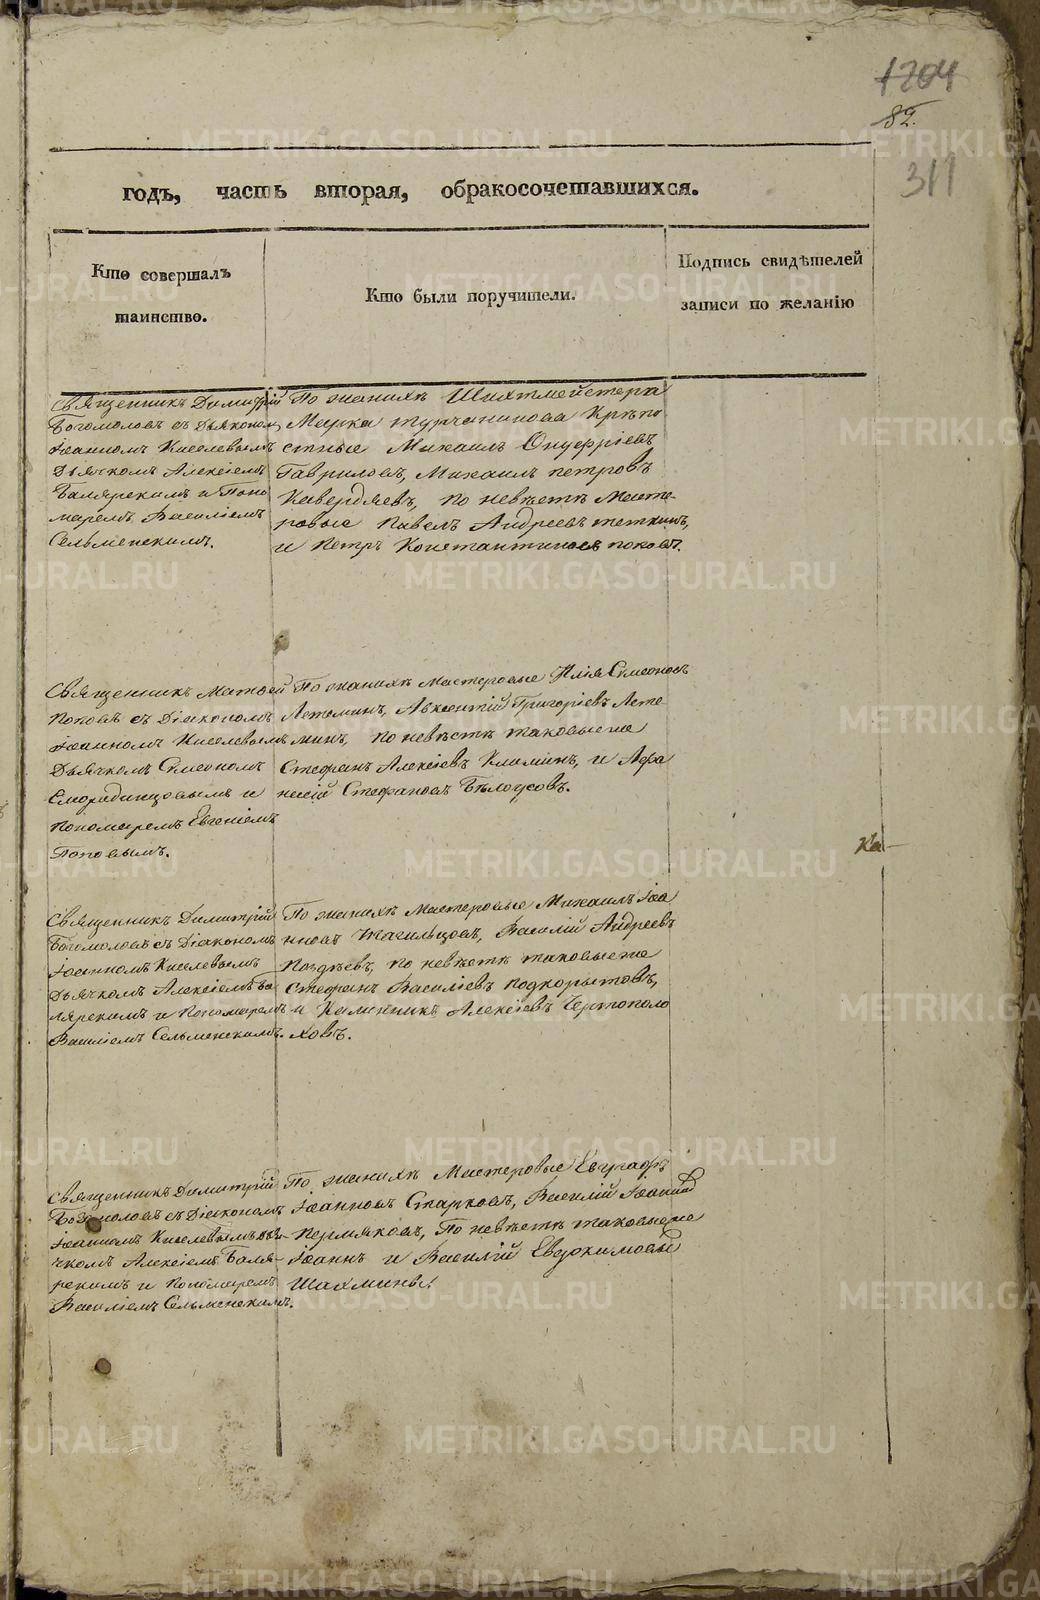 1204
82.
311
годъ, часть вторая, обракосочетавшихся.
Кто совершалъ
таинство.
Кто были поручители.
Подпись свидѣтелей
записи по желанію
Священникъ Димитрій
Богомоловъ съ Дьякономъ
Іоанномъ Киселевымъ
Дьячкомъ Алексіемъ
Балярскимъ и Поно
маремъ Василіемъ
Сельменскимъ.
По женихѣ Шихтмейстера
Марка Турчанинова Крѣпо
стные Михаилъ Онуфріевъ
Гавриловъ, Михаилъ Петровъ
Кавердяевъ, по невѣстѣ Масте-
ровые Павелъ Андреевъ Теткинъ,
и Петръ Константиновъ Поповъ.
Священникъ Матвей
Поповъ съ Діакономъ
Іоанномъ Киселевымъ
Дьячкомъ Симеономъ
Смородинцовымъ и
Пономаремъ Евгеніемъ
Поповымъ.
По женихѣ Мастеровые Илія Симеоновъ
Летеминъ, Авксентій Григоріевъ Лете
минъ, по невѣстѣ таковые же
Стефанъ Алексіевъ Климинъ, и Афа
насій Стефановъ Бѣлоусовъ.
Ка-
Священникъ Димитрій
Богомоловъ съ Діакономъ
Іоанномъ Киселевымъ
Дьячкомъ Алексіемъ Ба
лярскимъ и Пономаремъ
Василіемъ Сельменскимъ.
По женихѣ Мастеровые Михаилъ Іоа
нновъ Тагильцовъ, Василій Андреевъ
Поздѣевъ, по невѣстѣ таковые же
Стефанъ Василіевъ Подкорытовъ,
и Каменщикъ Алексіевъ Чертополо
ховъ.
Священникъ Димитрій
Богомоловъ съ Діакономъ
Іоанномъ Киселевымъ Дья-
чкомъ Алексіемъ Баля-
рскимъ и Пономаремъ
Василіемъ Сельменскимъ.
По женихѣ Мастеровые Евграфъ
Іоанновъ Старковъ, Василій
Пермяковъ, По невѣстѣ таковые же
Іоаннъ и Василій Евдокимовы
Шахмины.
METRIKI.GASO-URAL.RU